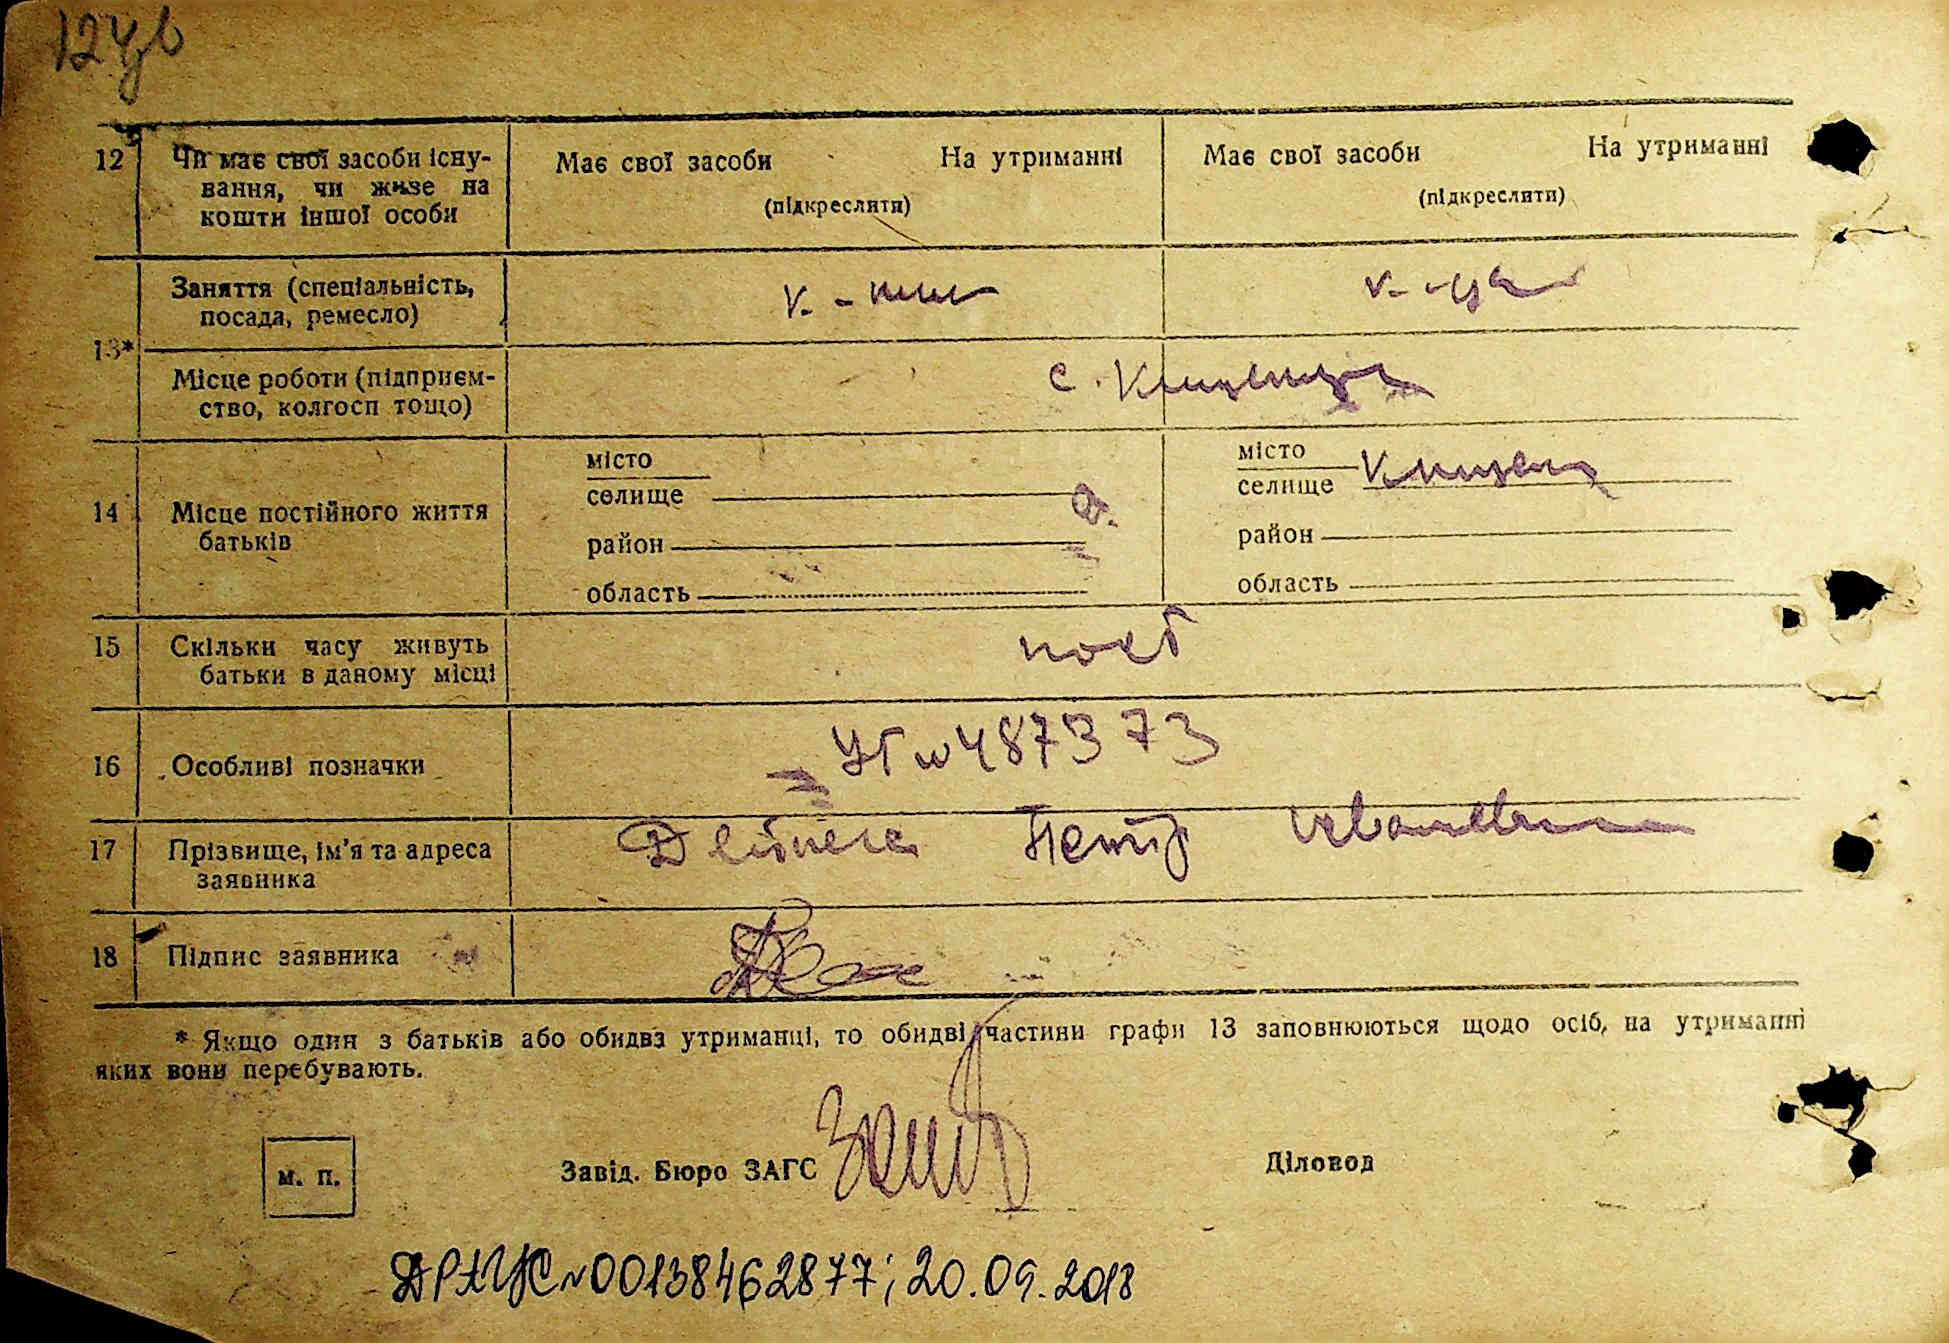 124
12 Чи має свої засоби існу-
вання, чи живе на
кошти іншої особи
Має свої засоби На утриманні
(підкреслити)
Має свої засоби На утриманні
(підкреслити)
13*
Заняття (спеціальність,
посада, ремесло)
к.-
к.-
Місце роботи (підприєм-
ство, колгосп тощо)
с.
14 Місце постійного життя
батьків
місто
селище
район
область
місто
селище
район
область
15 Скільки часу живуть
батьки в даному місці
пост
16 Особливі позначки
УГ № 487373
17 Прізвище, ім'я та адреса
заявника
Дейнега Петро Іванович
18 Підпис заявника
* Якщо один з батьків або обидва утриманці, то обидві частини графи 13 заповнюються щодо осіб, на утриманні
яких вони перебувають.
м. п.
Завід. Бюро ЗАГС
Діловод
ДРАЦС №00138462877; 20.09.2018